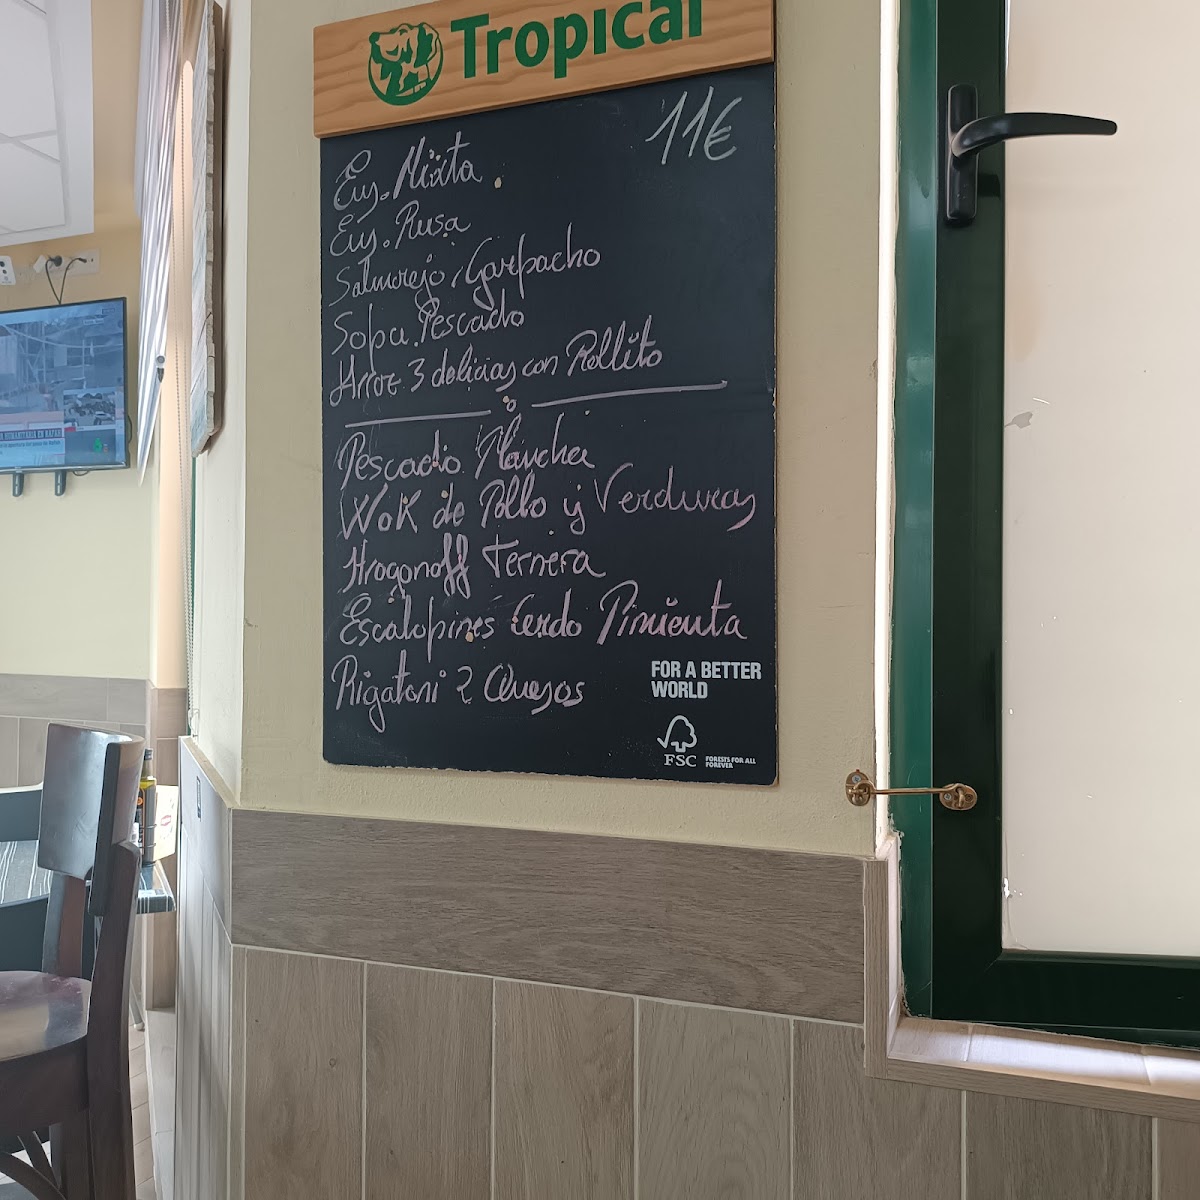 Tropical
11€
Ens. Mixta
Ens. Rusa
Salmorejo, Gazpacho
Sopa Pescado
Arroz 3 delicias con Rollito
Pescado Plancha
Wok de Pollo y Verduras
Strogonoff Ternera
Escalopines Cerdo Pimienta
Rigatoni 2 Quesos
FOR A BETTER
WORLD
FSC
FORESTS FOR ALL
FOREVER